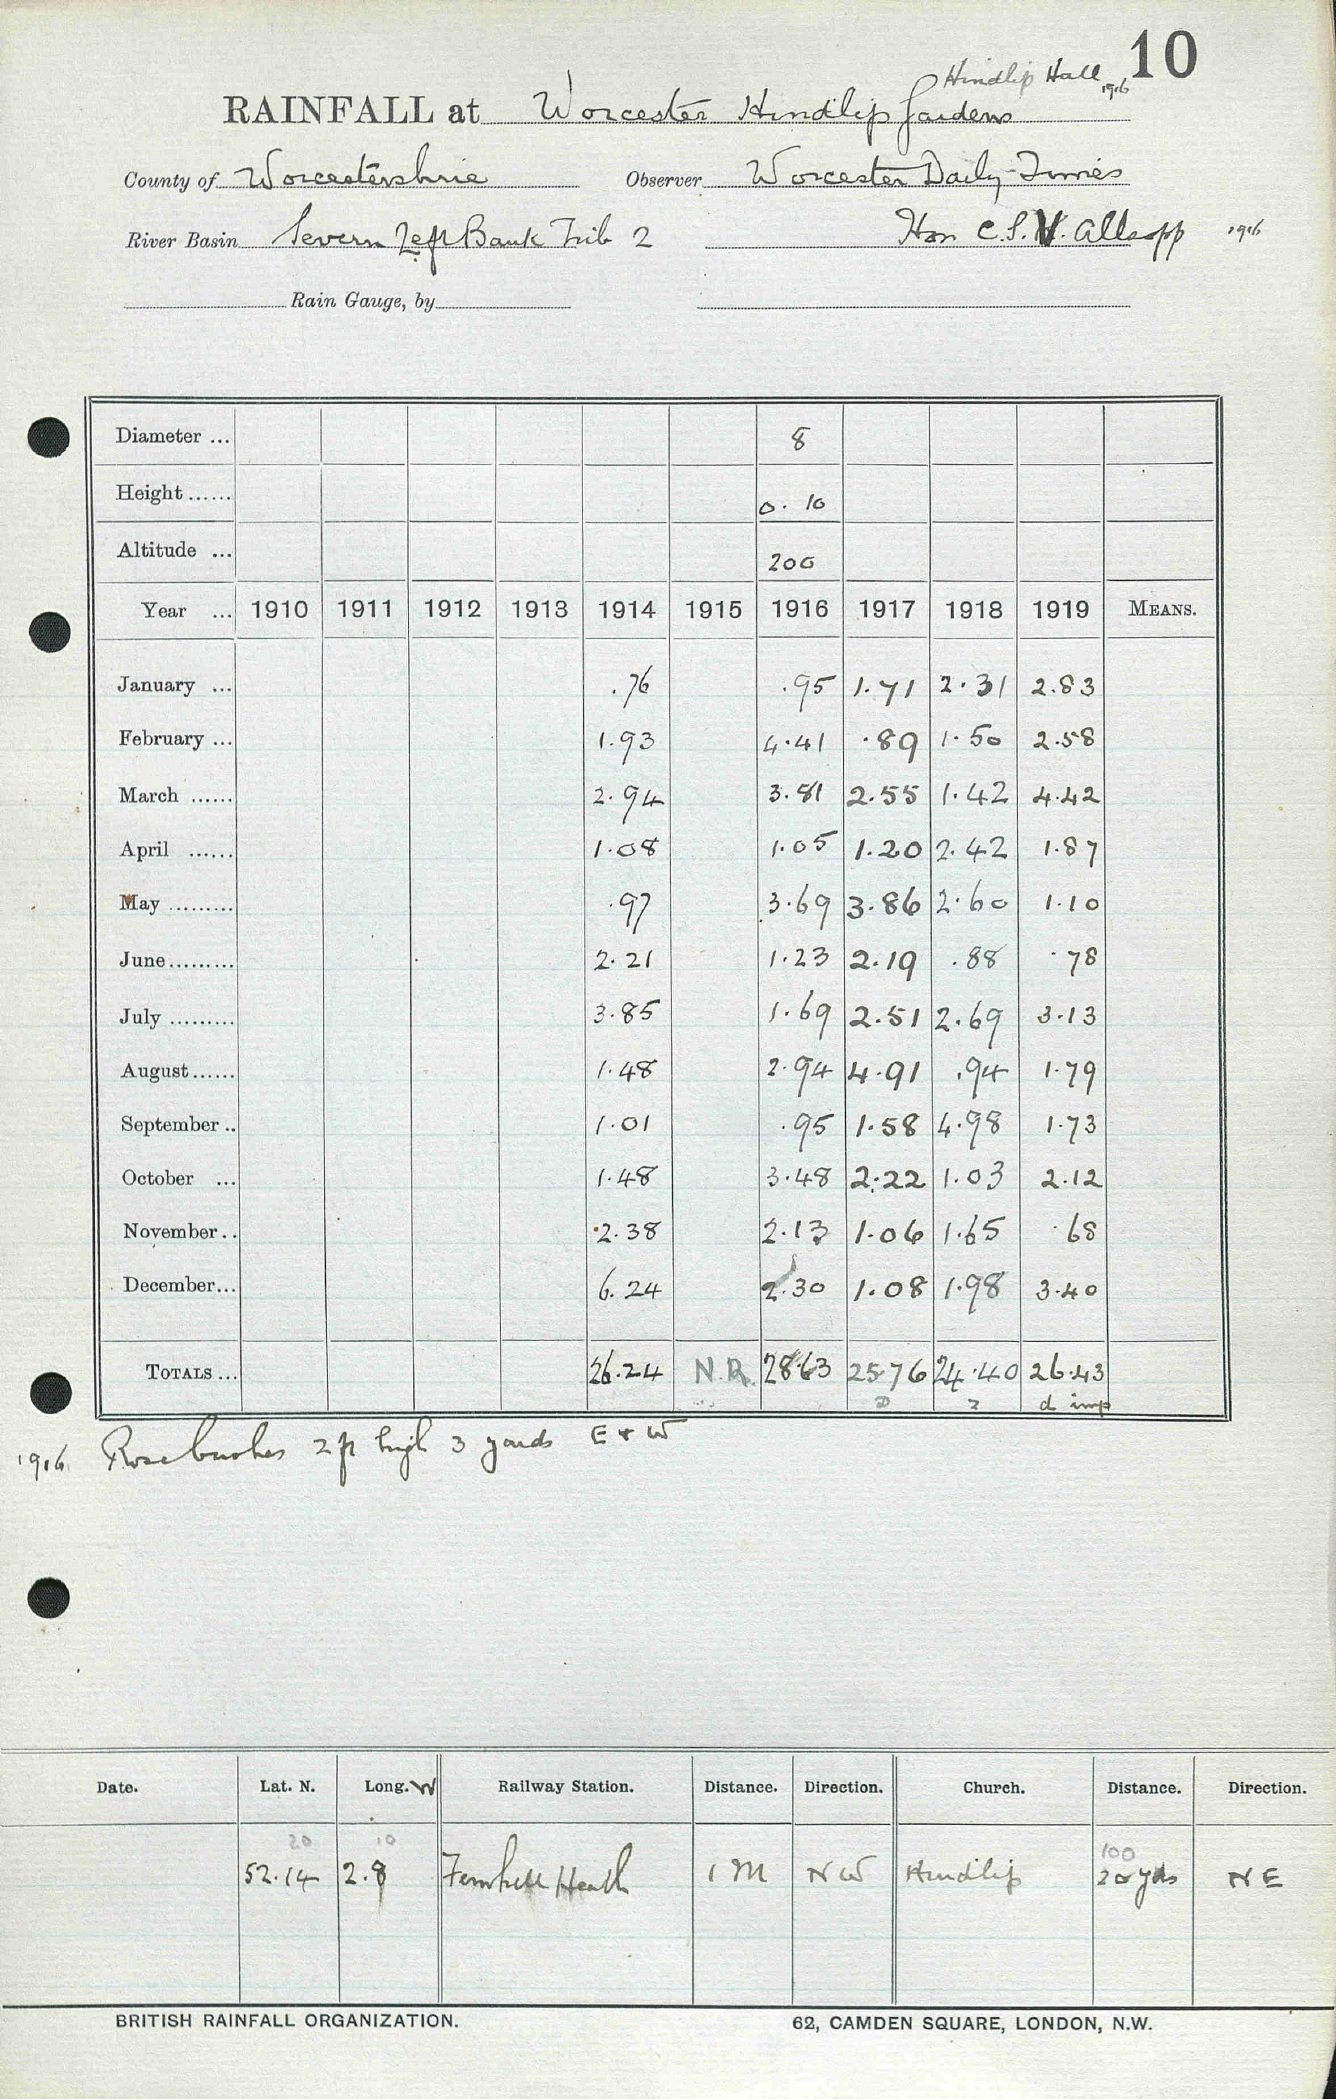 10
Hindlip Hall 1916
RAINFALL at Worcester Hindlip Gardens
County of Worcestershire Observer Worcester Daily Times
River Basin Severn Left Bank Trib 2 Hon C.S.V. Allsopp 1916
Rain Gauge, by
Diameter ... 8
Height ...... 0. 10
Altitude ... 200
Year ... 1910 1911 1912 1913 1914 1915 1916 1917 1918 1919 MEANS.
January ... .76 .95 1.71 2.31 2.83
February ... 1.93 4.41 .89 1.50 2.58
March ...... 2.94 3.81 2.55 1.42 4.42
April ...... 1.08 1.05 1.20 2.42 1.87
May ......... .97 3.69 3.86 2.60 1.10
June......... 2.21 1.23 2.19 .88 .78
July ......... 3.85 1.69 2.51 2.69 3.13
August...... 1.48 2.94 4.91 .94 1.79
September .. 1.01 .95 1.58 4.98 1.73
October ... 1.48 3.48 2.22 1.03 2.12
November.. 2.38 2.13 1.06 1.65 .68
December... 6.24 2.30 1.08 1.98 3.40
TOTALS ... 26.24 N.R. 28.63 25.76 24.40 26.43
d imp
1916 Rosebushes 2 ft high 3 yards E & W
Date. Lat. N. Long. W Railway Station. Distance. Direction. Church. Distance. Direction.
20 10 100
52.14 2.8 Fernhill Heath 1 M NW Hindlip 20 yds NE
BRITISH RAINFALL ORGANIZATION. 62, CAMDEN SQUARE, LONDON, N.W.